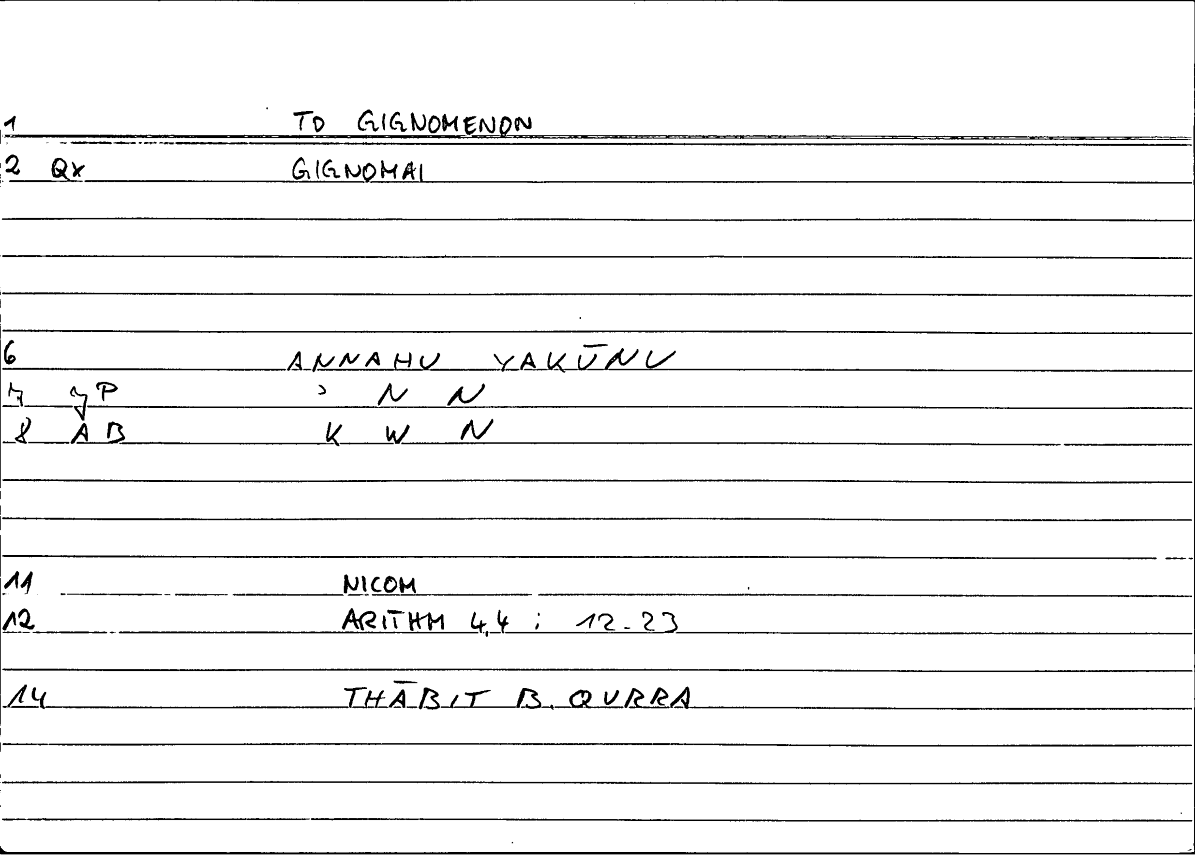 1 TO GIGNOMENON
2 Qx GIGNOMAI
6 ANNAHU YAKŪNU
7 ʾ N N
8 AB K W N
11 NICOM
12 ARITHM 4,4 : 12-23
14 THĀBIT B. QURRA